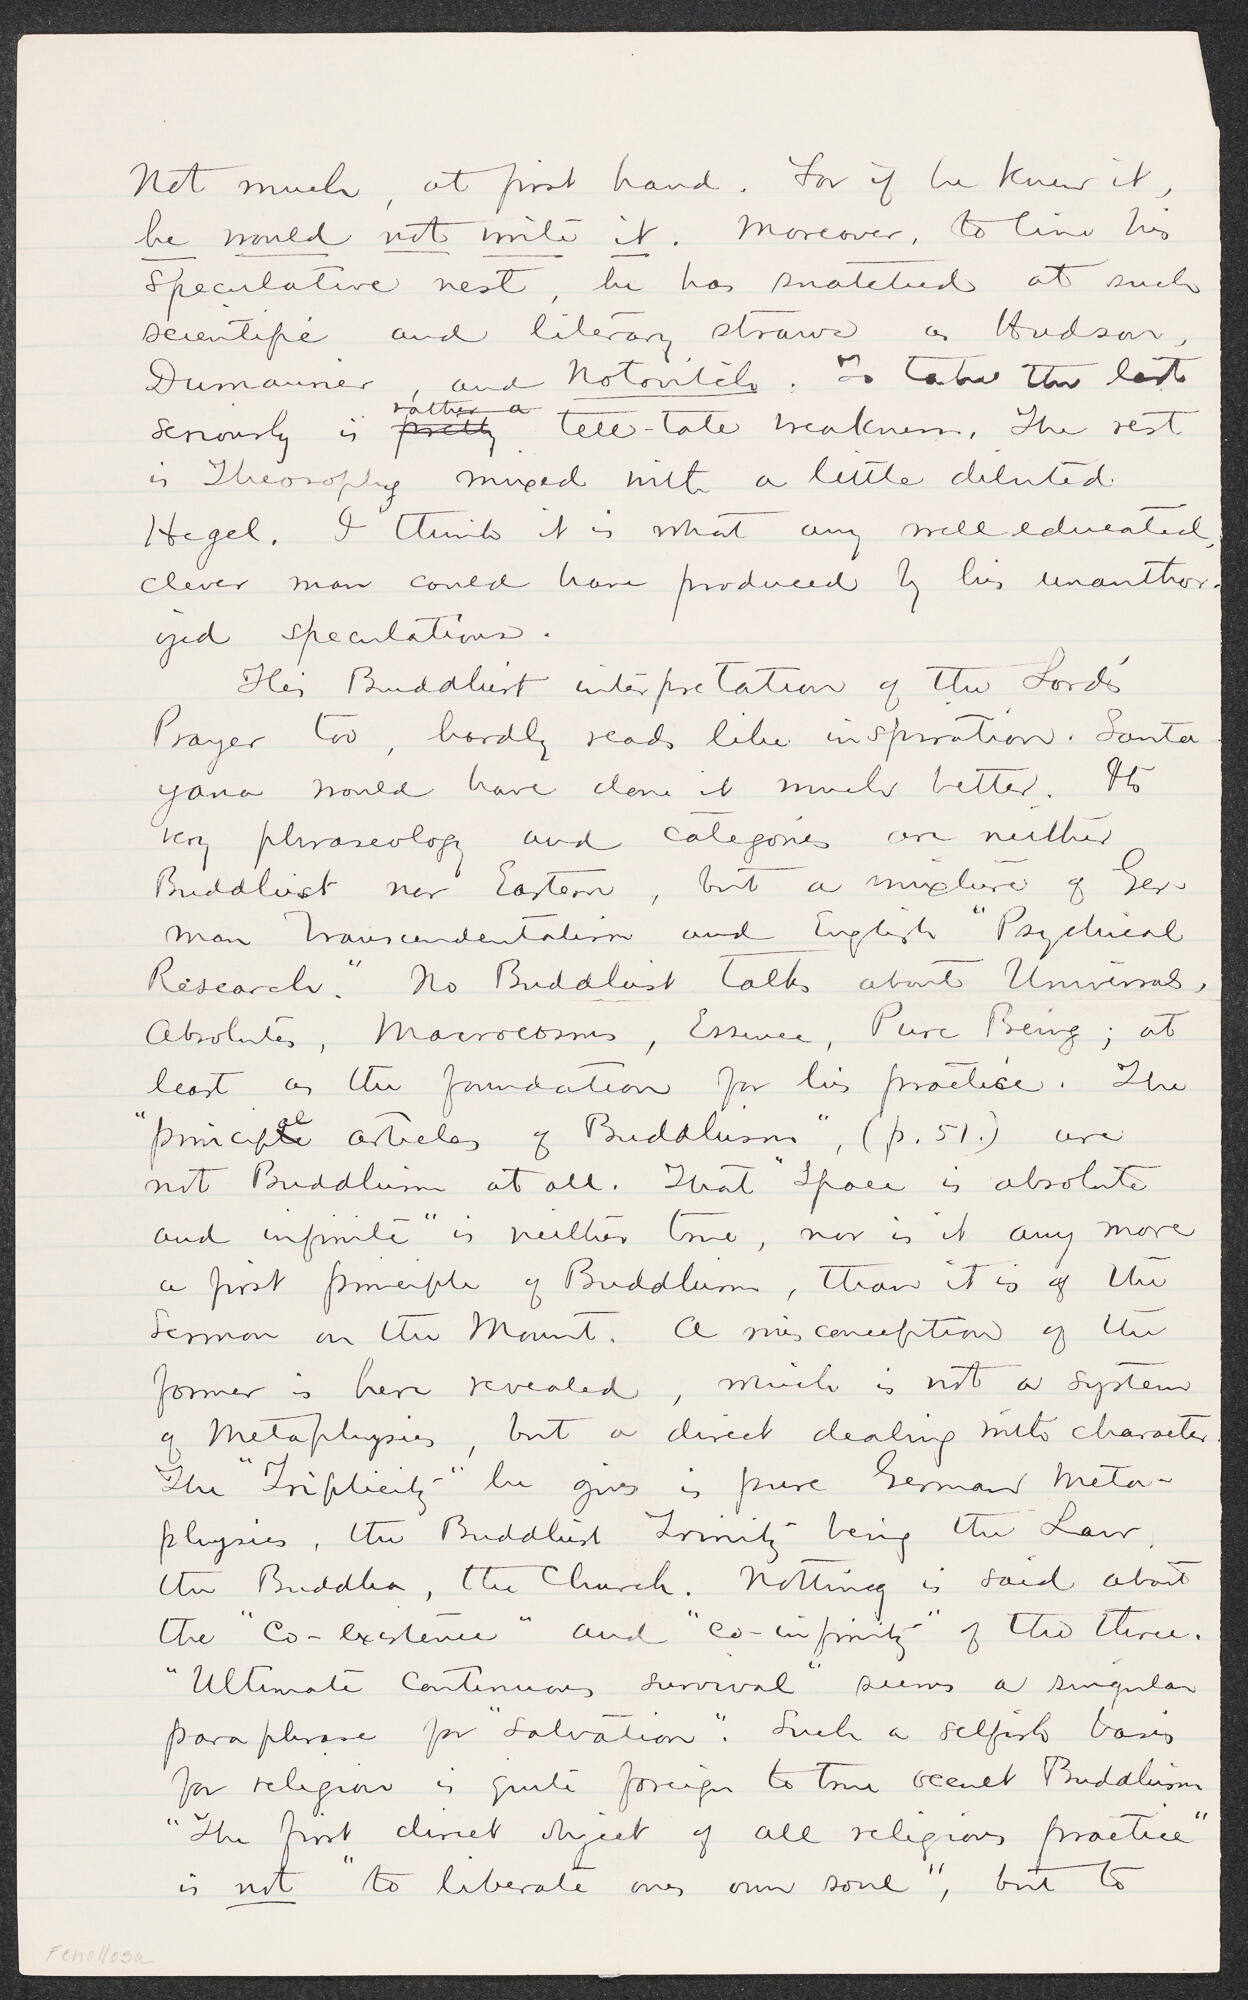 Not much, at first hand. For if he knew it,
he would not write it. Moreover, to line his
speculative nest, he has snatched at such
scientific and literary straws as Hudson,
Dumaurier, and Notovitch. To take the last
rather a
seriously is pretty tell-tale weakness. The rest
is Theosophy mixed with a little diluted
Hegel. I think it is what any well educated,
clever man could have produced by his unauthor-
ized speculations.
His Buddhist interpretation of the Lord's
Prayer too, hardly reads like inspiration. Santa
yana would have done it much better. Its
very phraseology and categories are neither
Buddhist nor Eastern, but a mixture of Ger-
man Transcendentalism and English "Psychical
Research." No Buddhist talks about Universals,
Absolutes, Macrocosms, Essence, Pure Being; at
least as the foundation for his practice. The
"principal articles of Buddhism", (p. 51.) are
not Buddhism at all. That "Space is absolute
and infinite" is neither true, nor is it any more
a first principle of Buddhism, than it is of the
Sermon on the Mount. A misconception of the
former is here revealed, which is not a system
of Metaphysics, but a direct dealing with character.
The "Triplicity" he gives is pure German Meta-
physics, the Buddhist Trinity being the Law,
the Buddha, the Church. Nothing is said about
the "Co-existence" and "co-infinity" of the three.
"Ultimate continuous survival" seems a singular
paraphrase for "Salvation". Such a selfish basis
for religion is quite foreign to true occult Buddhism
"The first direct object of all religious practice"
is not "to liberate ones own soul", but to
Fenollosa